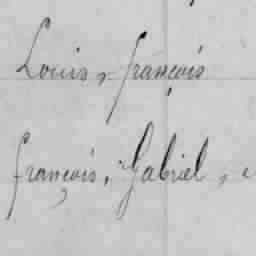 Louis, françois
françois, Gabriel,